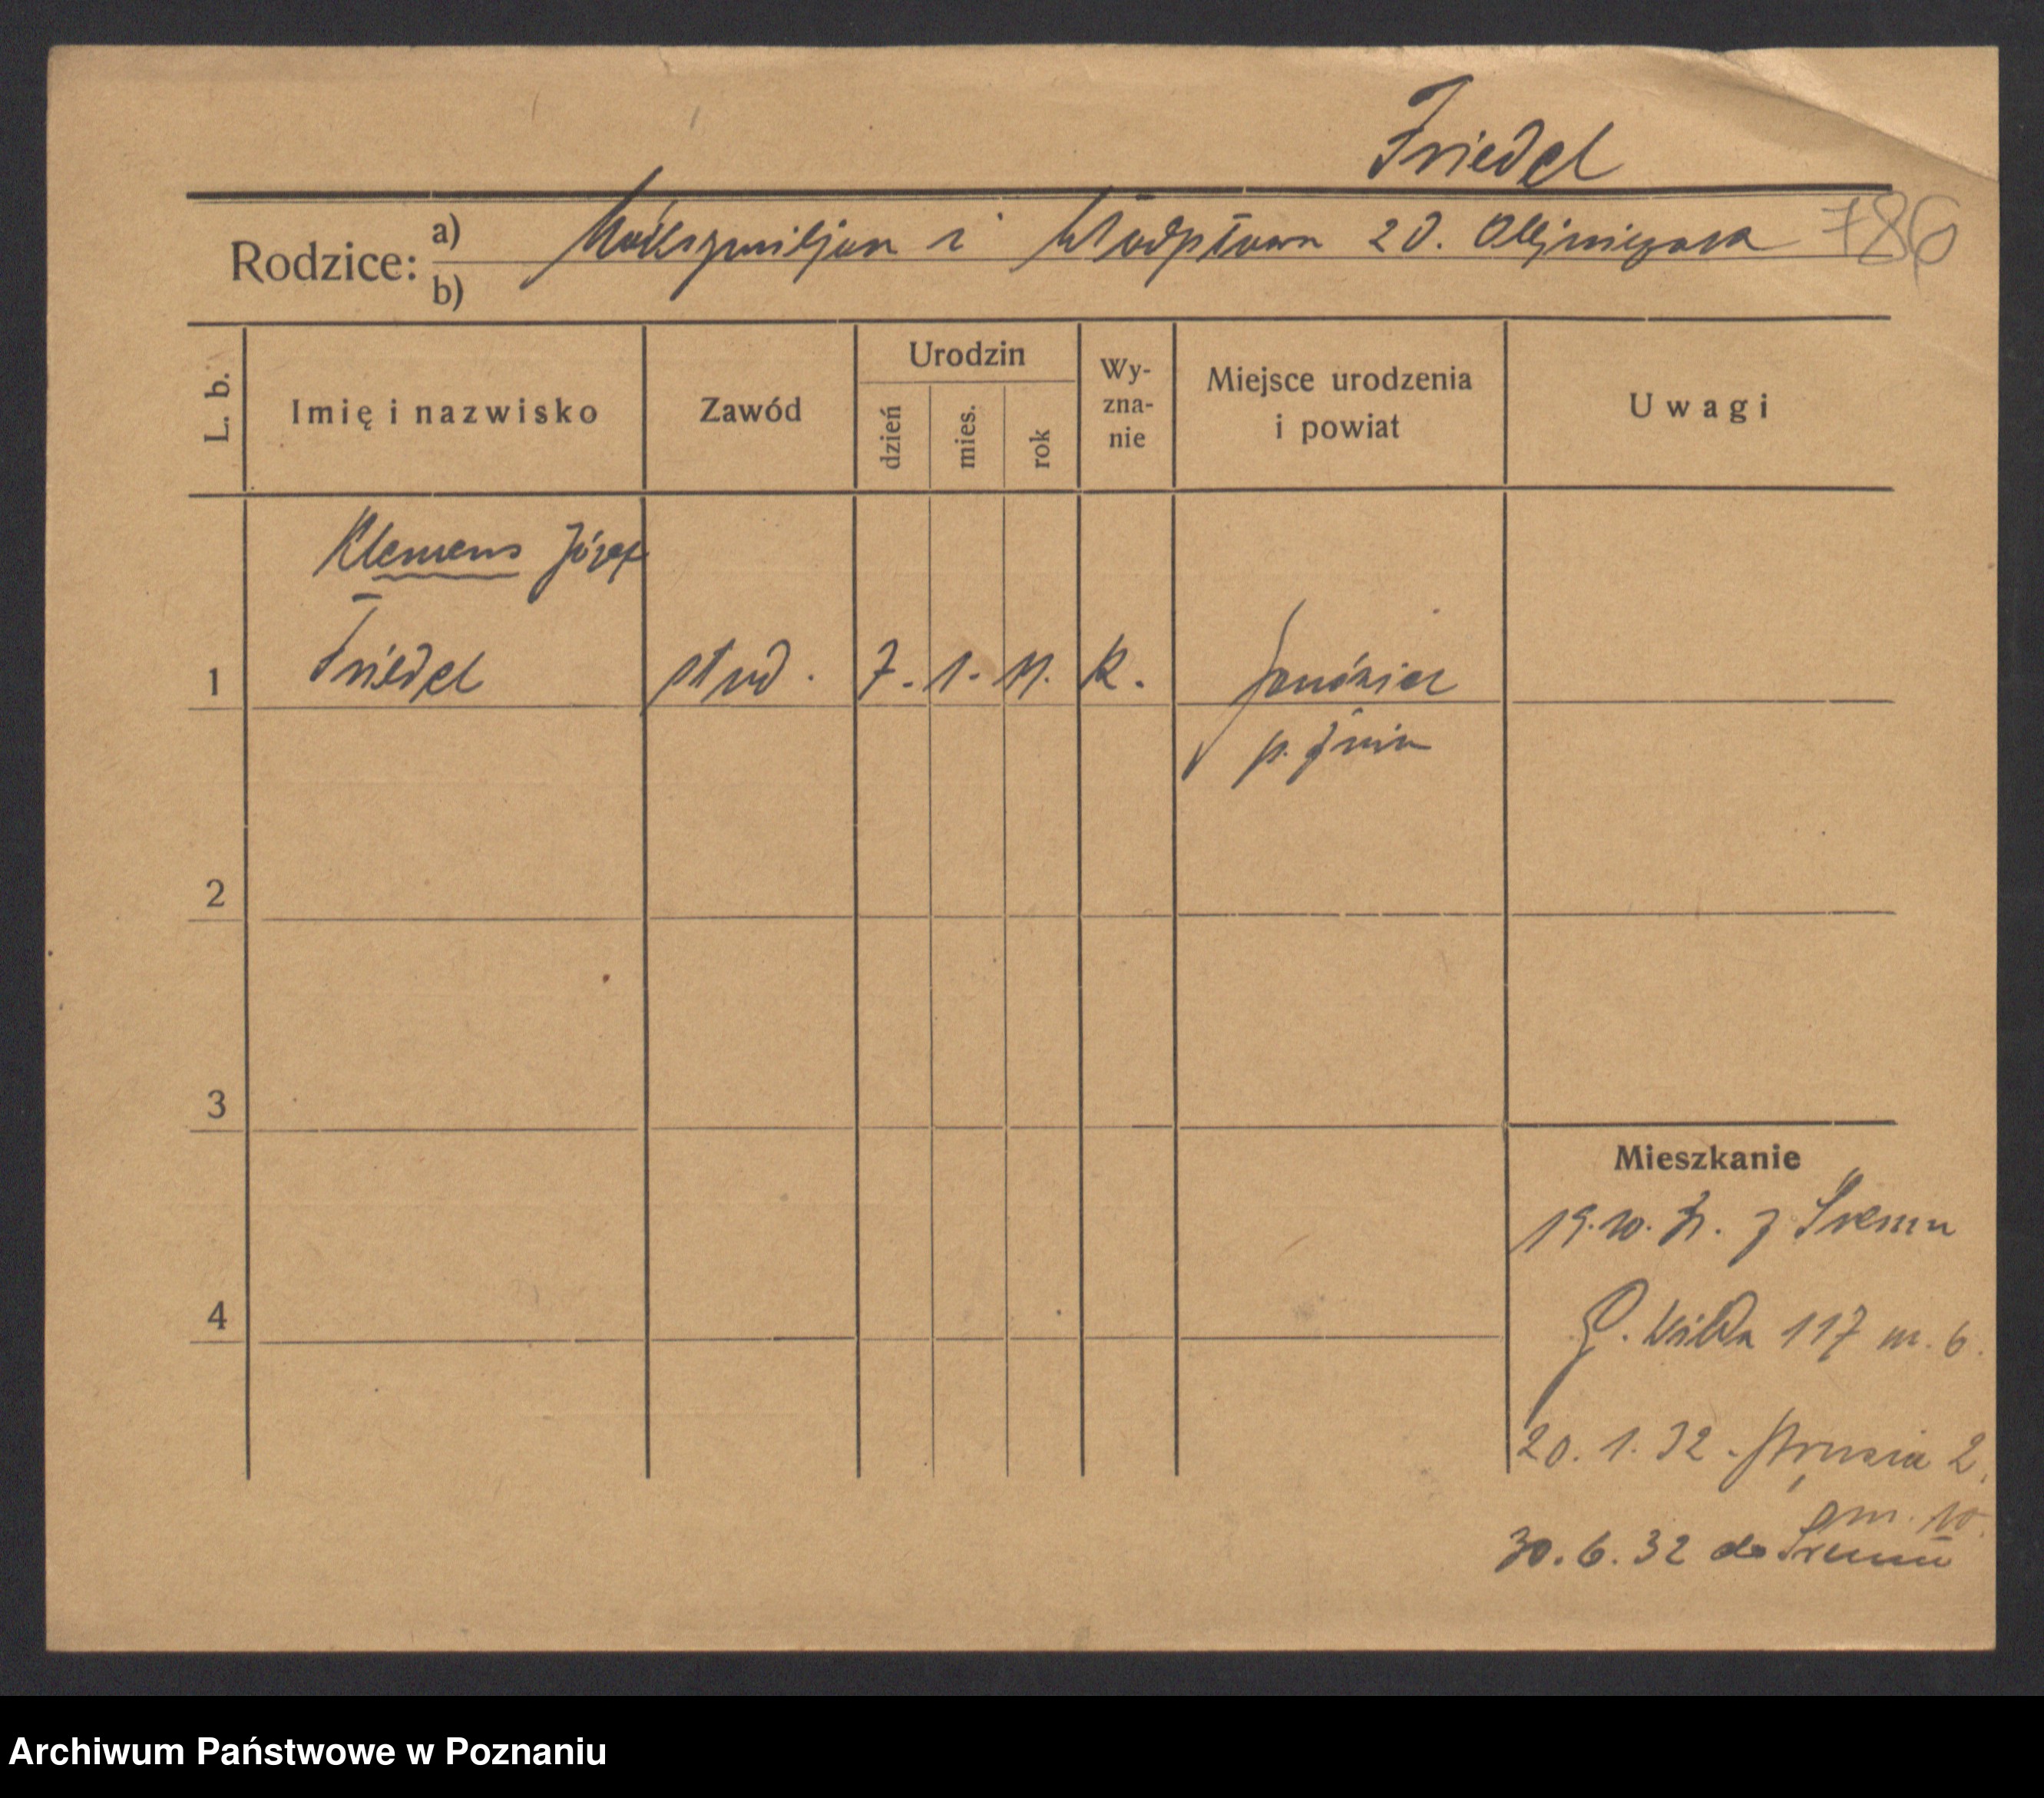 Friedel
786
Rodzice: a) Maksymiljan i Władysława zd. Olejniczaka
b)
L. b.
Imię i nazwisko
Zawód
Urodzin
dzień
mies.
rok
Wy-
zna-
nie
Miejsce urodzenia
i powiat
Uwagi
Klemens Józef
1 Friedel stud. 7. 1. 11. k. Janówiec
p. Żnin
2
3
Mieszkanie
19.10.31. z Śremu
4
G. Wilda 117 m. 6.
20. 1. 32. Strusia 2,
m. 10.
30. 6. 32 do Śremu
Archiwum Państwowe w Poznaniu